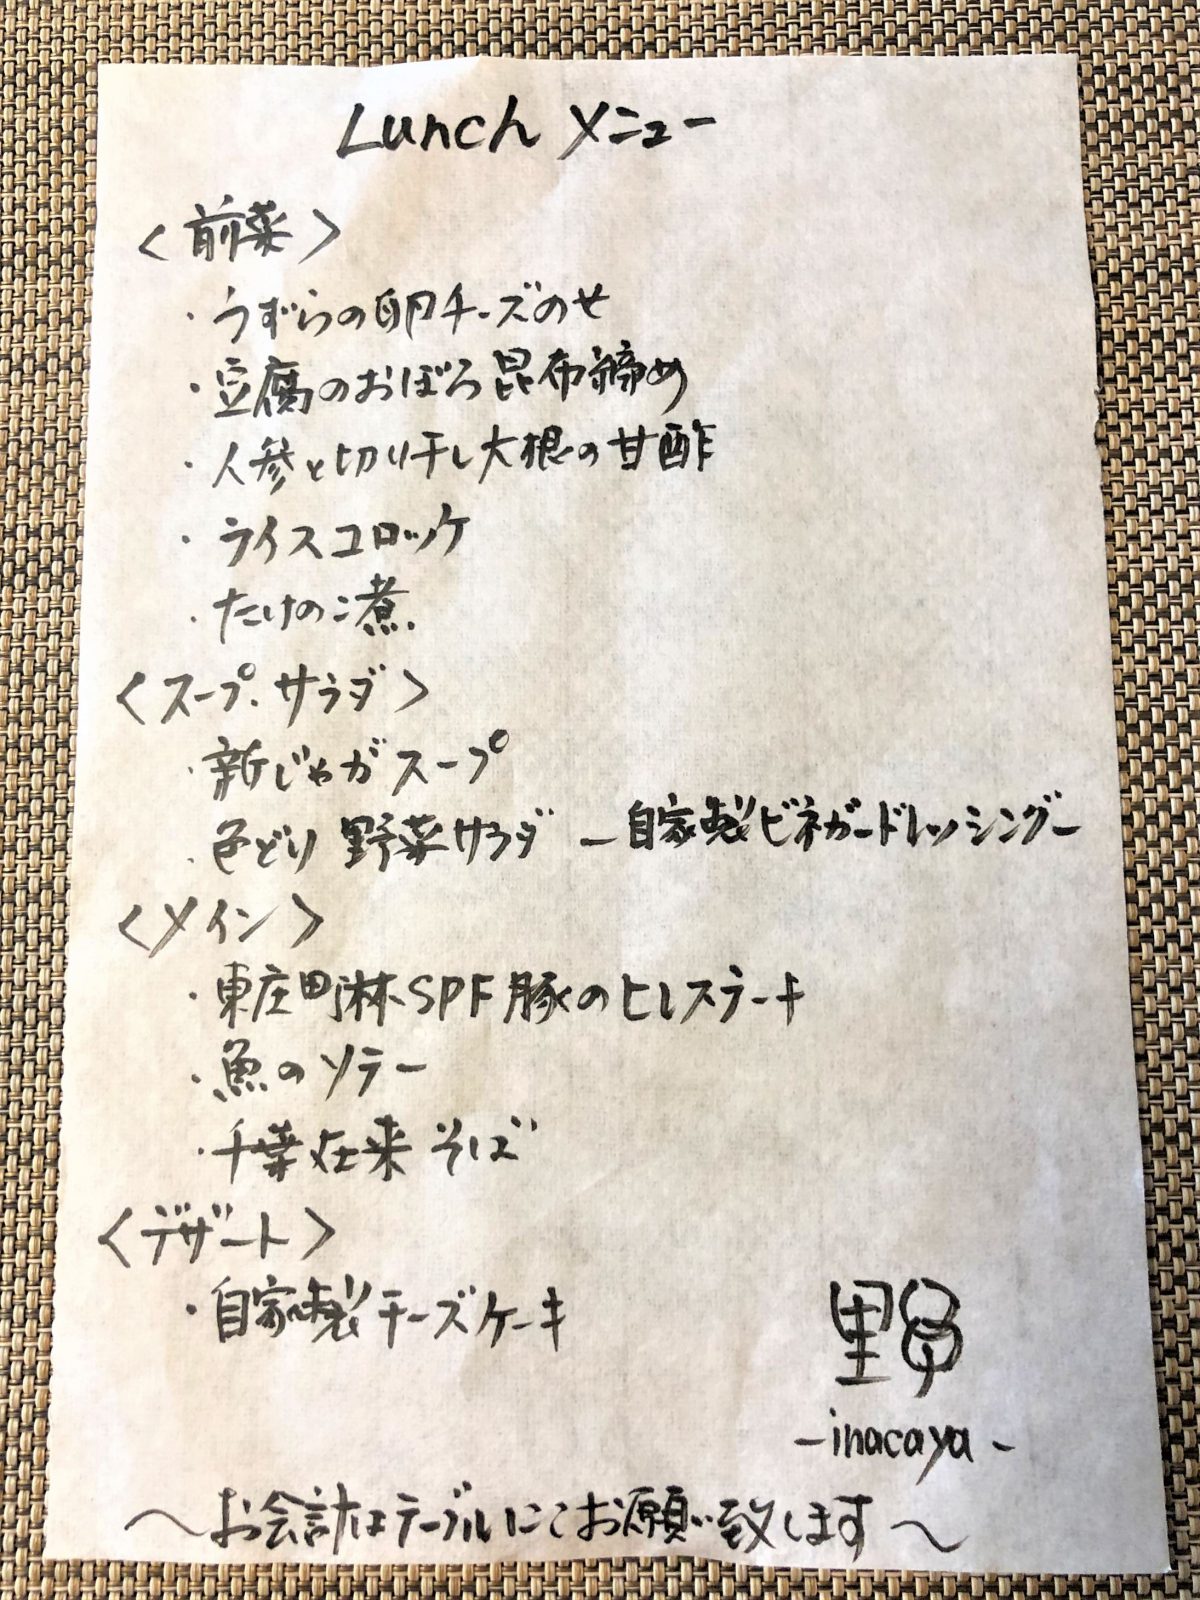 Lunch メニュー
〈前菜〉
・うずらの卵チーズのせ
・豆腐のおぼろ昆布締め
・人参と切り干し大根の甘酢
・ライスコロッケ
・たけのこ煮
〈スープ・サラダ〉
・新じゃがスープ
・色どり野菜サラダ ー自家製ビネガードレッシングー
〈メイン〉
・東庄町林SPF豚のヒレステーキ
・魚のソテー
・千葉在来そば
〈デザート〉
・自家製チーズケーキ
野
-inacaya-
〜お会計はテーブルにてお願い致します〜